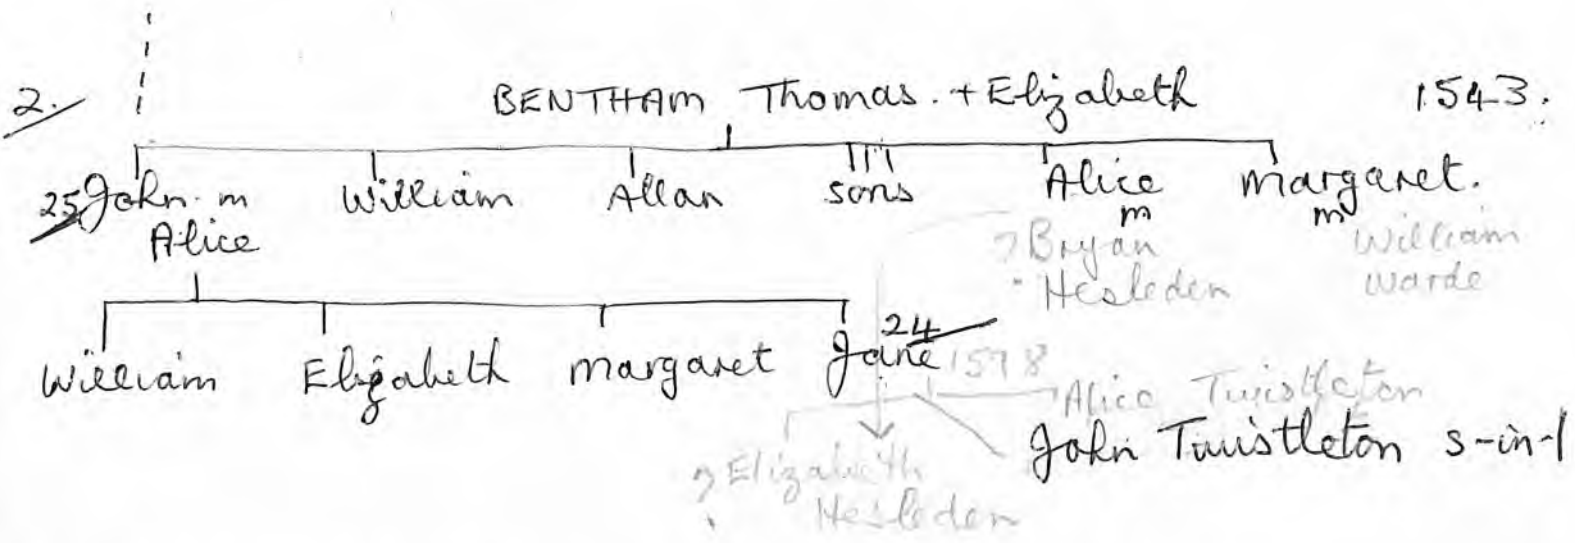 2. BENTHAM Thomas. + Elizabeth 1543.
25 John m William Allan sons Alice Margaret.
Alice m m
? Bryan William
Hesleden Warde
William Elizabeth Margaret Jane 24
1578
Alice Twistleton
John Twistleton s-in-l
? Elizabeth
Hesleden